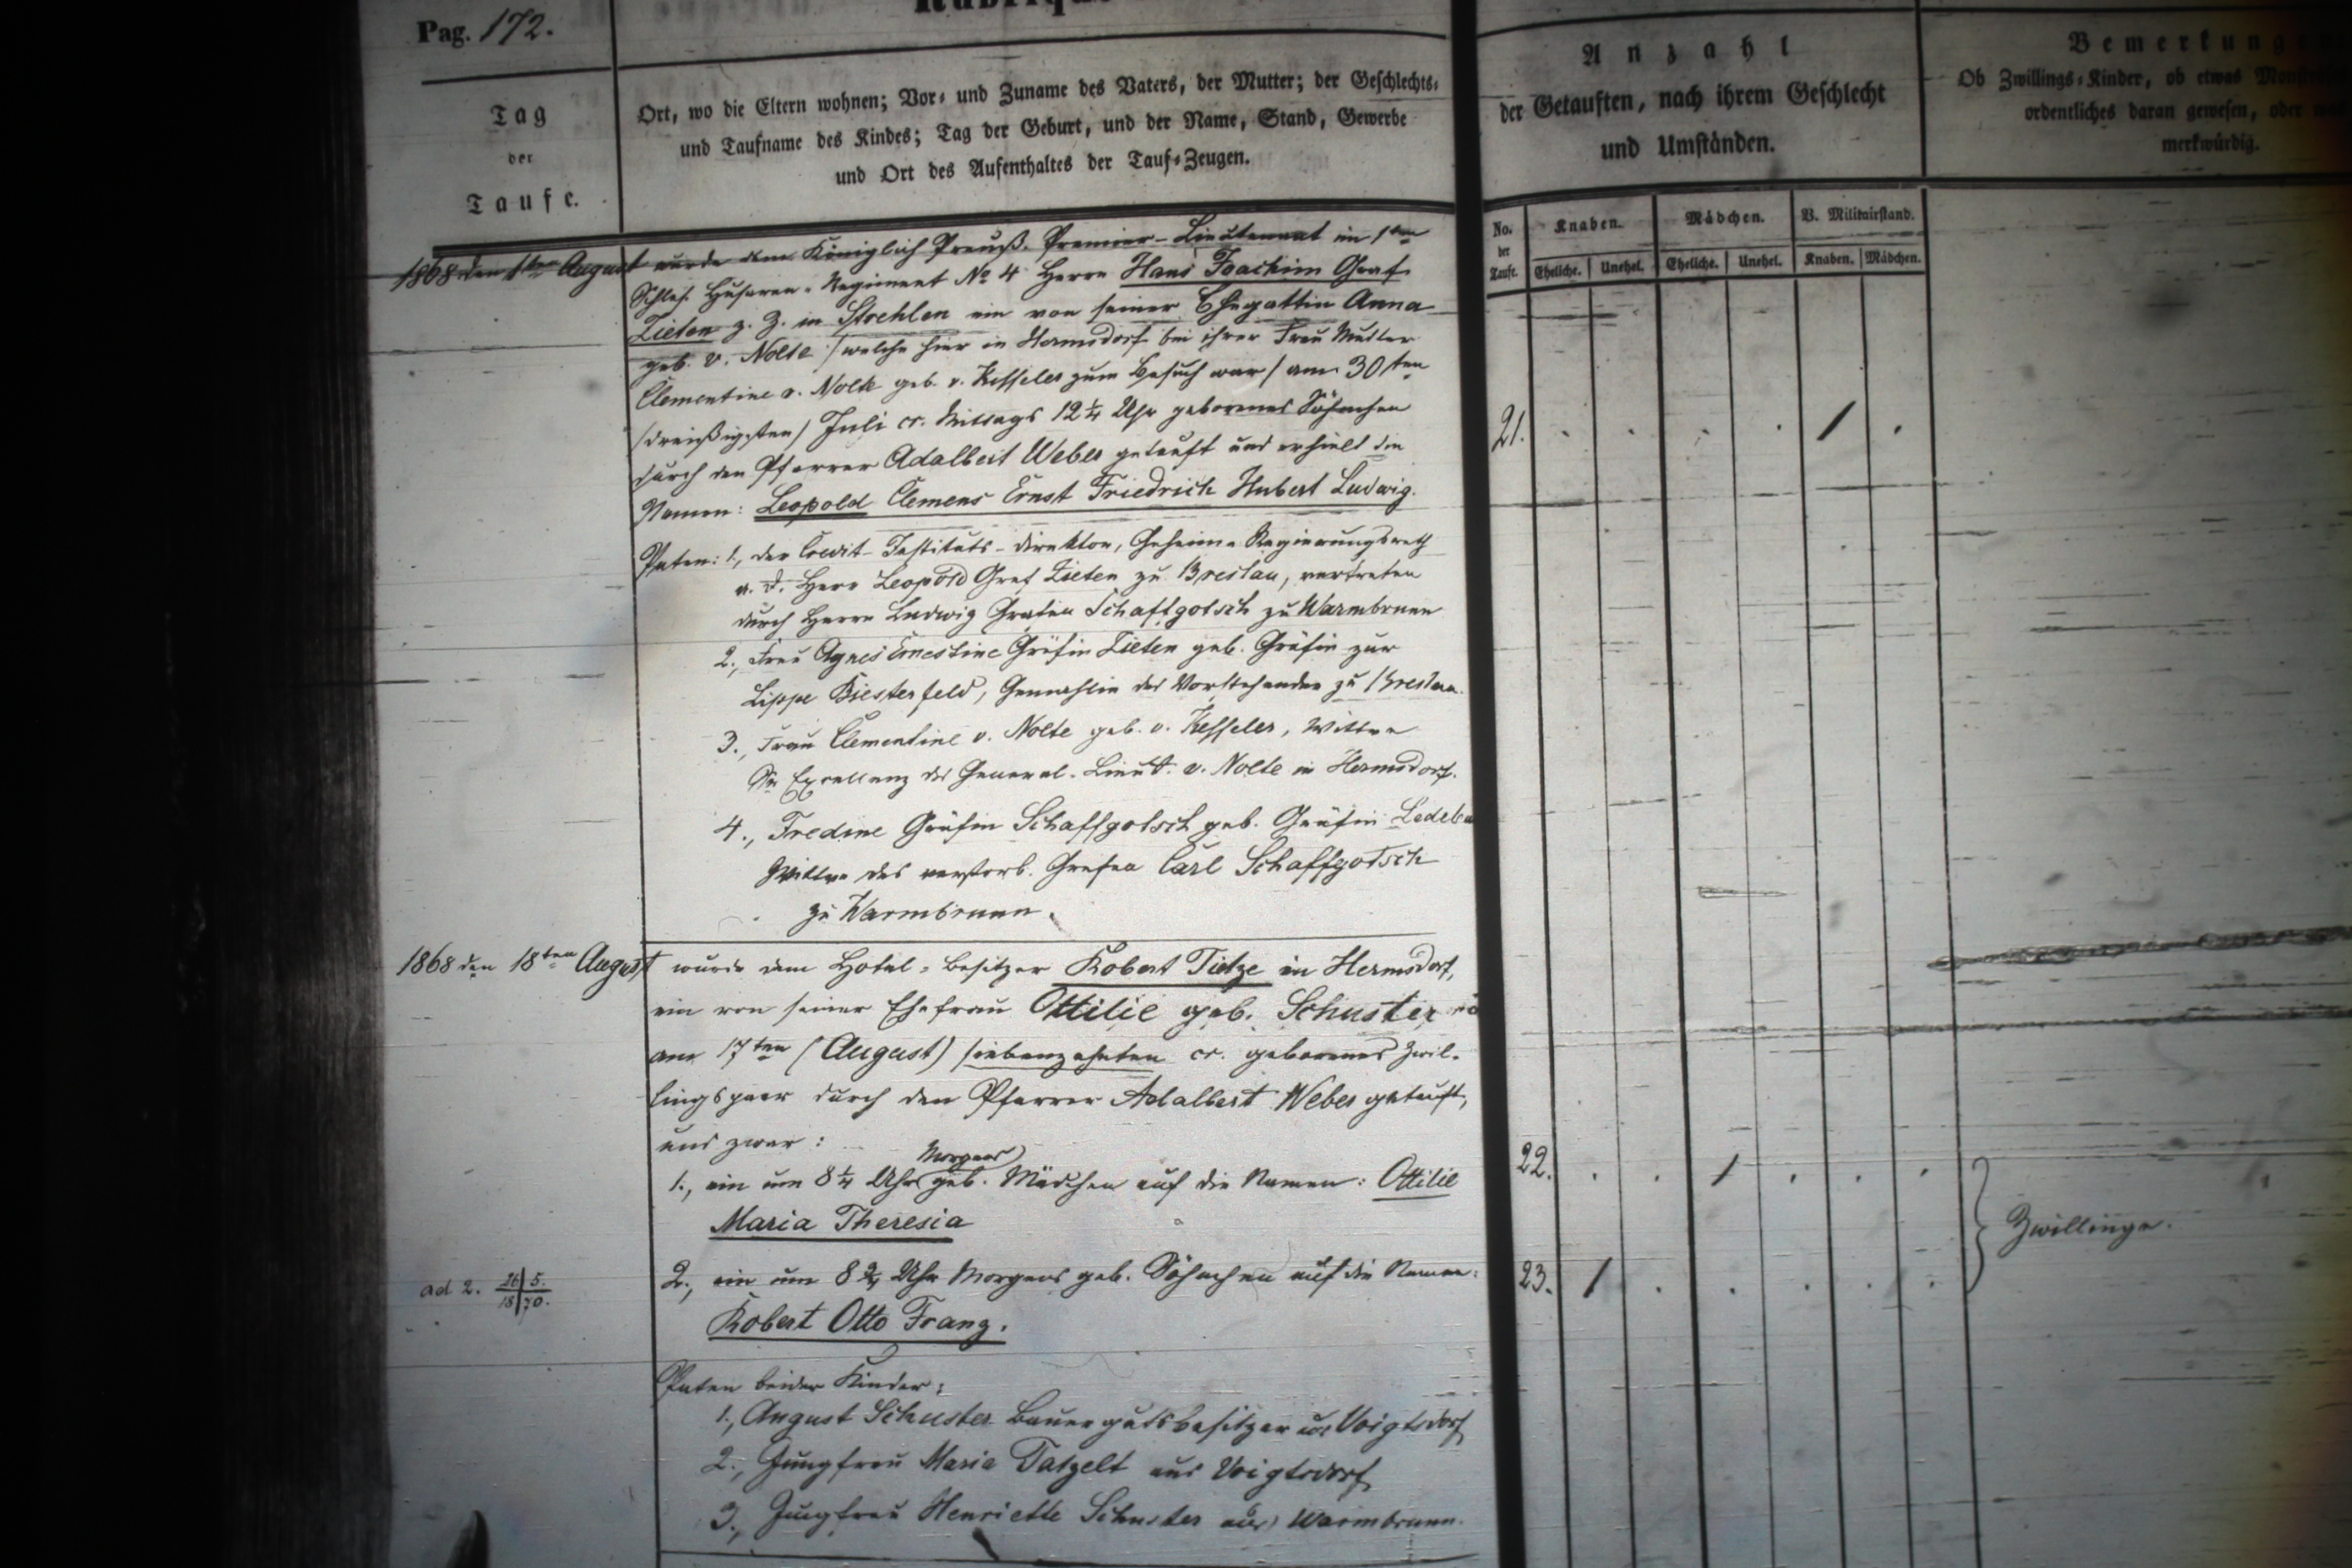 Pag. 172.
Tag
der
Taufe.
Ort, wo die Eltern wohnen; Vor- und Zuname des Vaters, der Mutter; der Geschlechts-
und Taufname des Kindes; Tag der Geburt, und der Name, Stand, Gewerbe
und Ort des Aufenthaltes der Tauf-Zeugen.
Anzahl
der Getauften, nach ihrem Geschlecht
und Umständen.
No.
der
Taufe.
Knaben.
Mädchen.
V. Militairstand.
Eheliche.
Unehel.
Eheliche.
Unehel.
Knaben.
Mädchen.
Bemerkung
Ob Zwillings-Kinder, ob etwas
ordentliches daran gewesen, oder
merkwürdig.
1868 den 1ten August wurde dem Königlich Preuß. Premier-Lieutenant im 1ten
Schles. Husaren-Regiment No 4 Herrn Hans Joachim Graf
Zieten z. Z. in Strehlen ein von seiner Ehegattin Anna
geb. v. Nolte /welche hier in Hermsdorf bei ihrer Frau Mutter
Clementine v. Nolte geb. v. Kesseler zum Besuch war/ am 30ten
/dreißigsten/ Juli cr. Mittags 12 1/4 Uhr geborenes Söhnchen
durch den Pfarrer Adalbert Weber getauft und erhielt die
Namen: Leopold Clemens Ernst Friedrich Hubert Ludwig.
21.
Paten: 1., der Credit-Instituts-Direktor, Geheime Regierungsrath
a. D. Herr Leopold Graf Zieten zu Breslau, vertreten
durch Herrn Ludwig Grafen Schaffgotsch zu Warmbrunn
2., Frau Agnes Ernestine Gräfin Zieten geb. Gräfin zur
Lippe Biesterfeld, Gemahlin des Vorstehenden zu Breslau.
3., Frau Clementine v. Nolte geb. v. Kesseler, Wittwe
Sr Excellenz des General-Lieut. v. Nolte in Hermsdorf.
4., Fredine Gräfin Schaffgotsch geb. Gräfin
Wittwe des verstorb. Grafen Carl Schaffgotsch
zu Warmbrunn.
1868 den 18ten August wurde dem Hotel-besitzer Robert Tietze in Hermsdorf,
ein von seiner Ehefrau Ottilie geb. Schuster
am 17ten (August) /siebenzehnten cr. geborenes Zwil-
lingspaar durch den Pfarrer Adalbert Weber getauft,
und zwar:
Morgens
1., ein um 8 1/4 Uhr geb. Mädchen auf die Namen: Ottilie
Maria Theresia
22.
Zwillinge.
ad 2. 26|5. 18|70.
2., ein um 8 3/4 Uhr Morgens geb. Söhnchen auf die Namen:
Robert Otto Franz.
23.
Paten beider Kinder:
1., August Schuster Bauergutsbesitzer aus Voigtsdorf
2., Jungfrau Maria Tatzelt aus Voigtsdorf
3., Jungfrau Henriette Schuster aus Warmbrunn.